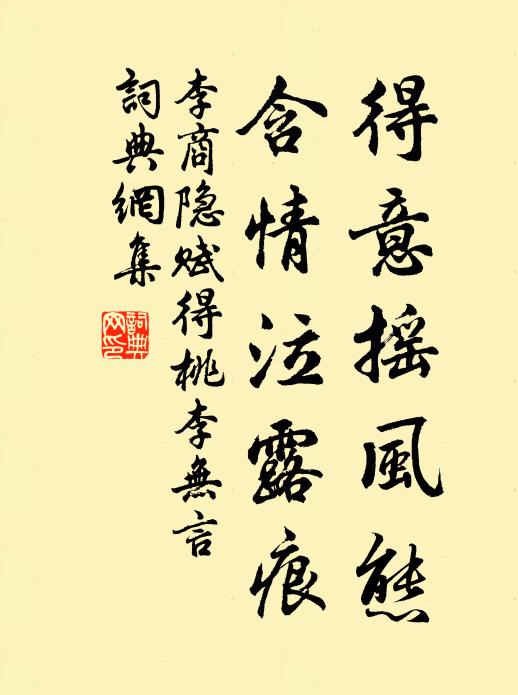 得意摇風態
含情泣露痕
李商隐赋得桃李無言
詞典網集
詞典網印